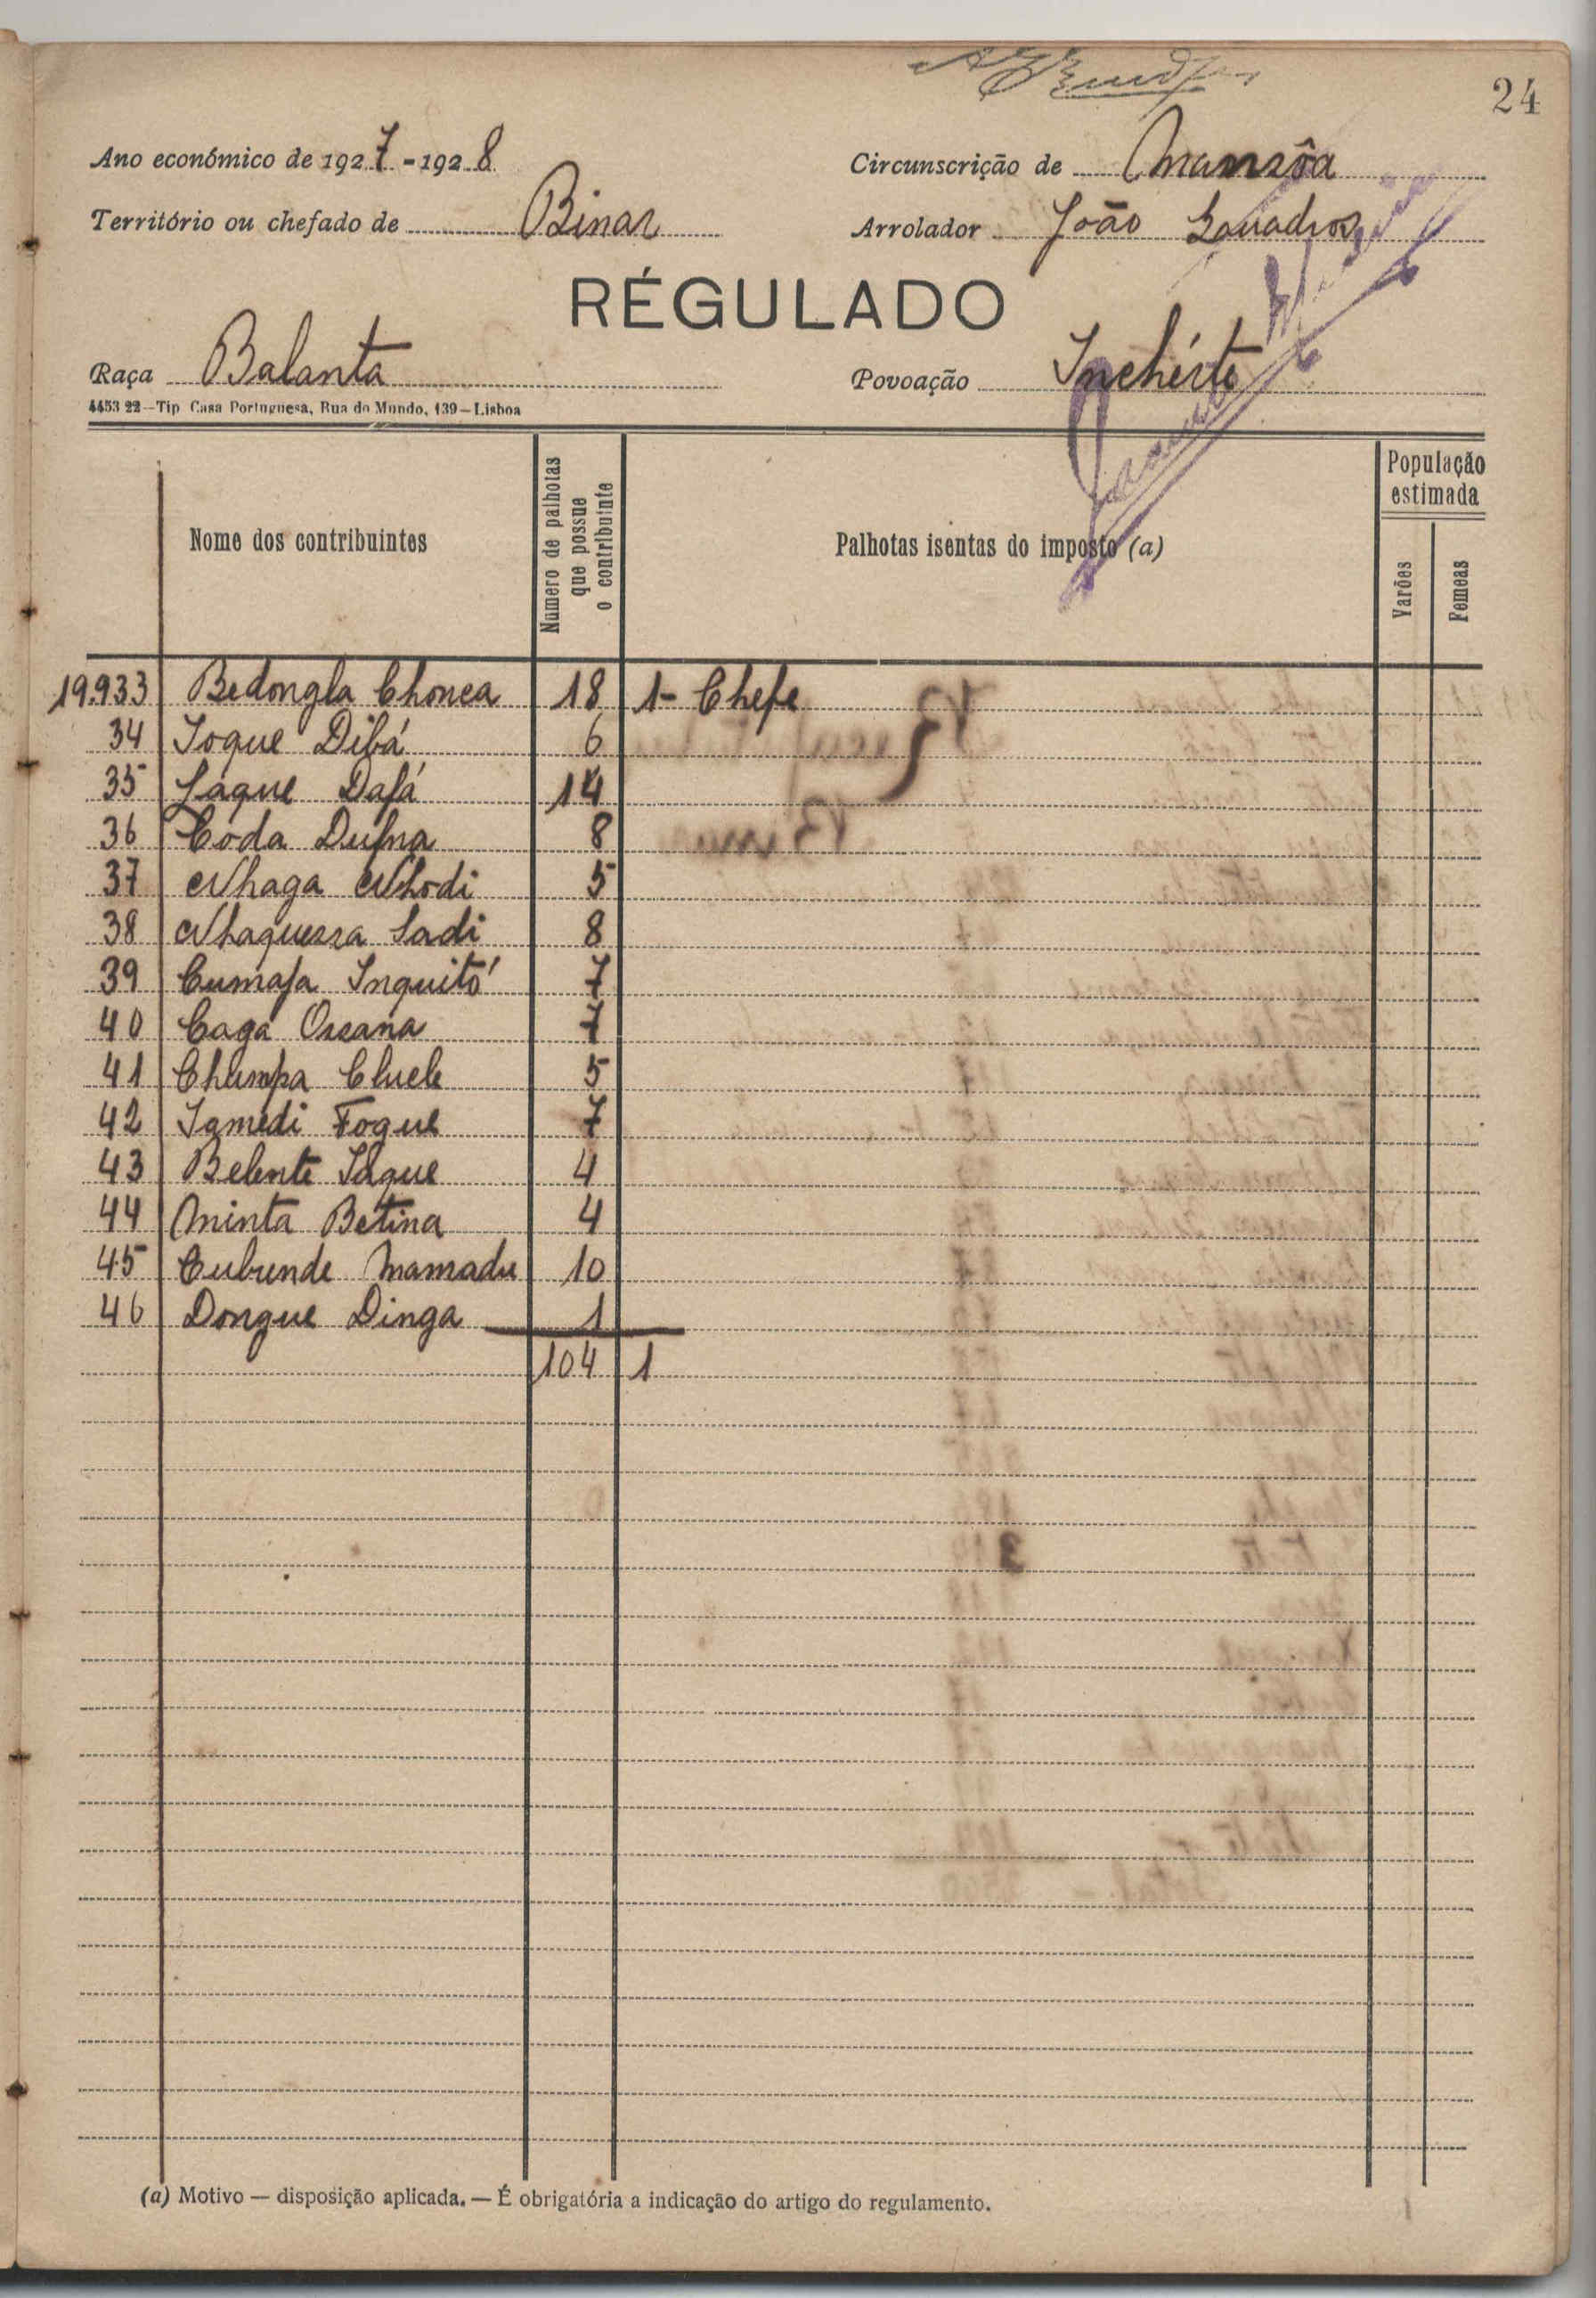 24
Ano económico de 1927-1928
Circunscrição de Mansôa
Território ou chefado de Binar
Arrolador João
RÉGULADO
Raça Balanta
Povoação Inchérte
4453 22—Tip Casa Portuguesa, Rua do Mundo, 139—Lisboa
Nome dos contribuintes
Número de palhotas que possue o contribuinte
Palhotas isentas do imposto (a)
População estimada
Varões
Femeas
19.933 Bedongla Chonca 18 1- Chefe
34 Ioque Dibá 6
35 Láque Dafá 14
36 Códa Dufna 8
37 Nhaga Nhodi 5
38 Nhaquessa Sadi 8
39 Cumafa Inquitó 7
40 Cagá Ossana 7
41 Chumpa Cluele 5
42 Iamedi Foque 7
43 Belente Iáque 4
44 Minta Betina 4
45 Cubunde Mamadu 10
46 Dongue Dinga 1
104 1
(a) Motivo — disposição aplicada. — É obrigatória a indicação do artigo do regulamento.